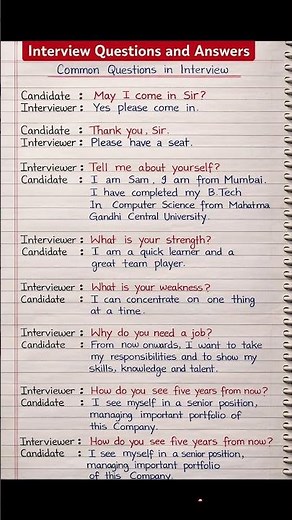 Interview Questions and Answers
Common Questions in Interview
Candidate : May I come in Sir?
Interviewer : Yes please come in.
Candidate : Thank you, Sir.
Interviewer : Please have a seat.
Interviewer : Tell me about yourself?
Candidate : I am Sam, I am from Mumbai.
I have completed my B.Tech
In Computer Science from Mahatma
Gandhi Central University.
Interviewer : What is your strength?
Candidate : I am a quick learner and a
great team player.
Interviewer : What is your weakness?
Candidate : I can concentrate on one thing
at a time.
Interviewer : Why do you need a job?
Candidate : From now onwards, I want to take
my responsibilities and to show my
skills, knowledge and talent.
Interviewer : How do you see five years from now?
Candidate : I see myself in a senior position,
managing important portfolio of
this Company.
Interviewer : How do you see five years from now?
Candidate : I see myself in a senior position,
managing important portfolio
of this Company.